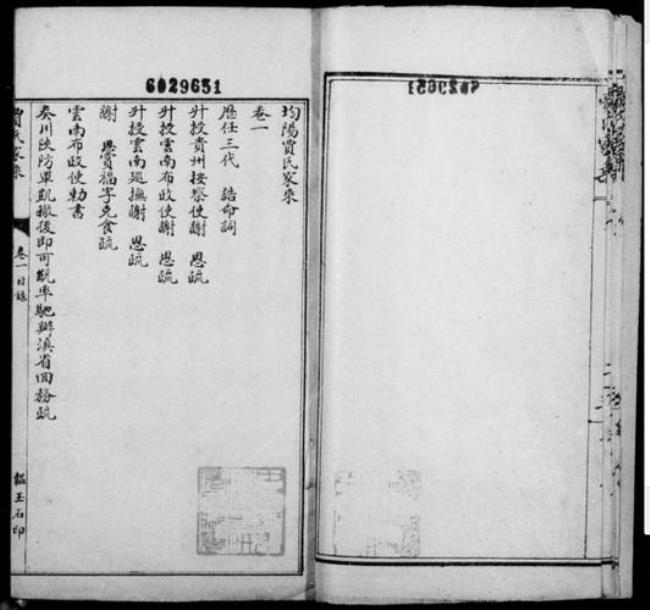 6029651
均陽賈氏家乘
卷一
歷任三代　誥命詞
升授貴州按察使謝　恩疏
升授雲南布政使謝　恩疏
升授雲南巡撫謝　恩疏
謝　恩賞福字克食疏
雲南布政使勅書
奏川陝防軍凱撤後即可親率馳辦滇省回務疏
賈氏家乘
卷一目錄
玉石印